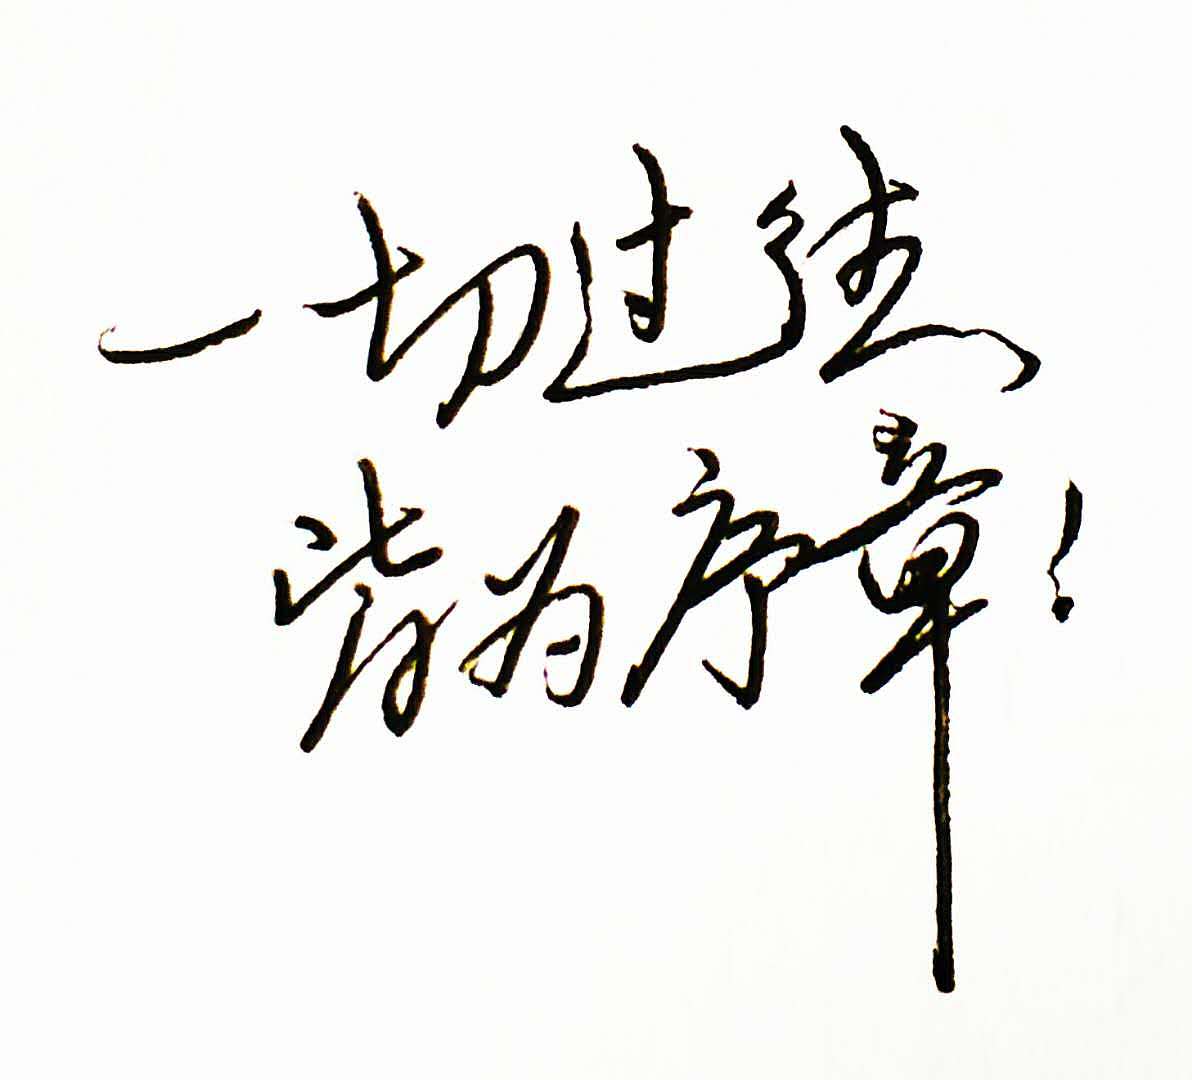 一切过往
皆为序章!